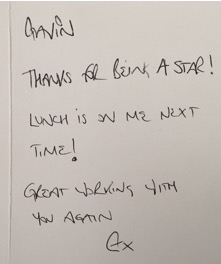 GAVIN
THANKS FOR BEING A STAR!
LUNCH IS ON ME NEXT
TIME!
GREAT WORKING WITH
YOU AGAIN
Gx